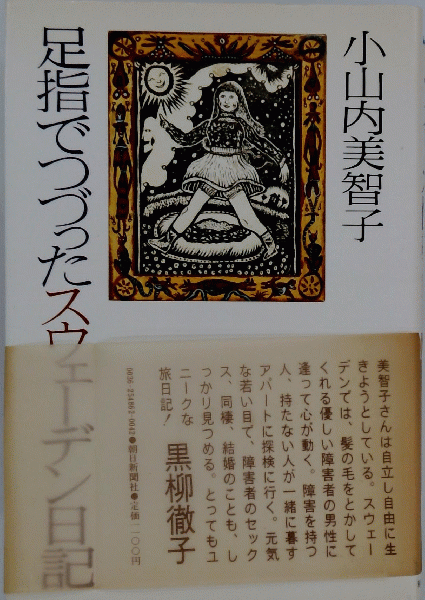 小山内美智子
足指でつづったスウェーデン日記
美智子さんは自立し自由に生
きようとしている。スウェー
デンでは、髪の毛をとかして
くれる優しい障害者の男性に
逢って心が動く。障害を持つ
人、持たない人が一緒に暮す
アパートに探検に行く。元気
な若い目で、障害者のセック
ス、同棲、結婚のことも、し
っかり見つめる。とってもユ
ニークな
旅日記!
黒柳徹子
●朝日新聞社●定価一一〇〇円